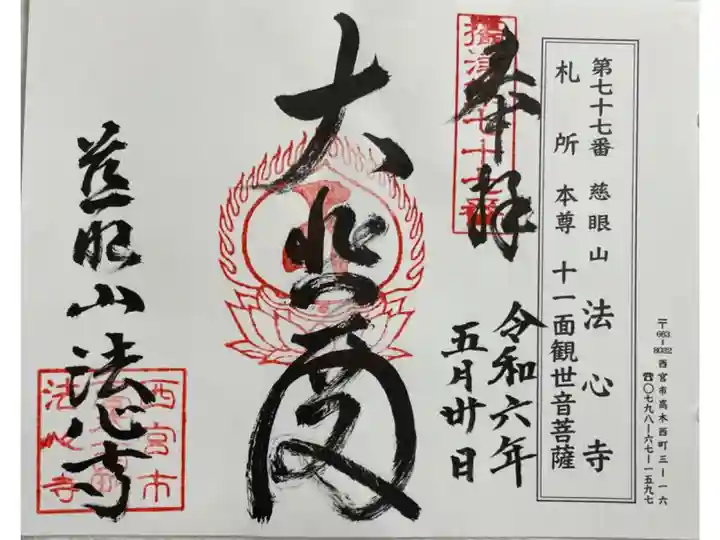 第七十七番 慈眼山 法心寺
札所 本尊 十一面観世音菩薩
〒663-8032 西宮市高木西町三ー一六
☎〇七九八ー六七ー一五九七
奉拝
令和六年
五月卅日
摂津七十七番
大悲殿
慈眼山法心寺
西宮市
法心寺